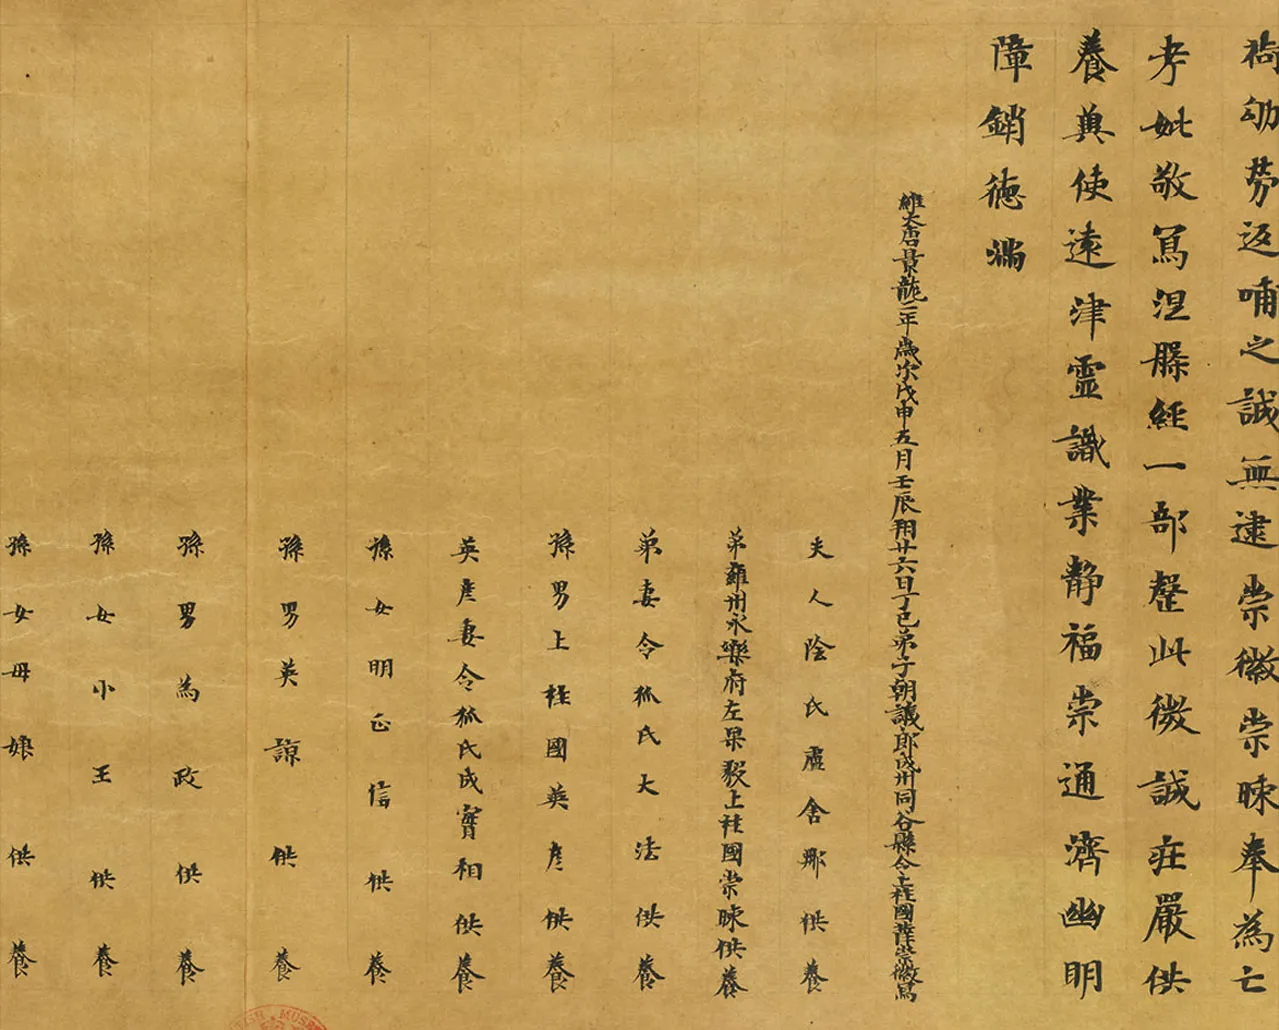 徇劬勞返哺之誠無逮崇徽崇暕奉為亡
考妣敬寫涅槃經一部罄此微誠莊嚴供
養冀使遠津靈識業静福崇通濟幽明
障銷德滿
維大唐景龍二年歲次戊申五月壬辰朔廿六日丁巳弟子朝議郎成州同谷縣令上柱國薛崇徽寫
夫人陰氏盧舍那供養
弟雍州永樂府左果毅上柱國崇暕供養
弟妻令狐氏大法供養
孫男上柱國英彦供養
英彦妻令狐氏成實相供養
孫女明正信供養
孫男英諒供養
孫男為政供養
孫女小王供養
孫女母娘供養